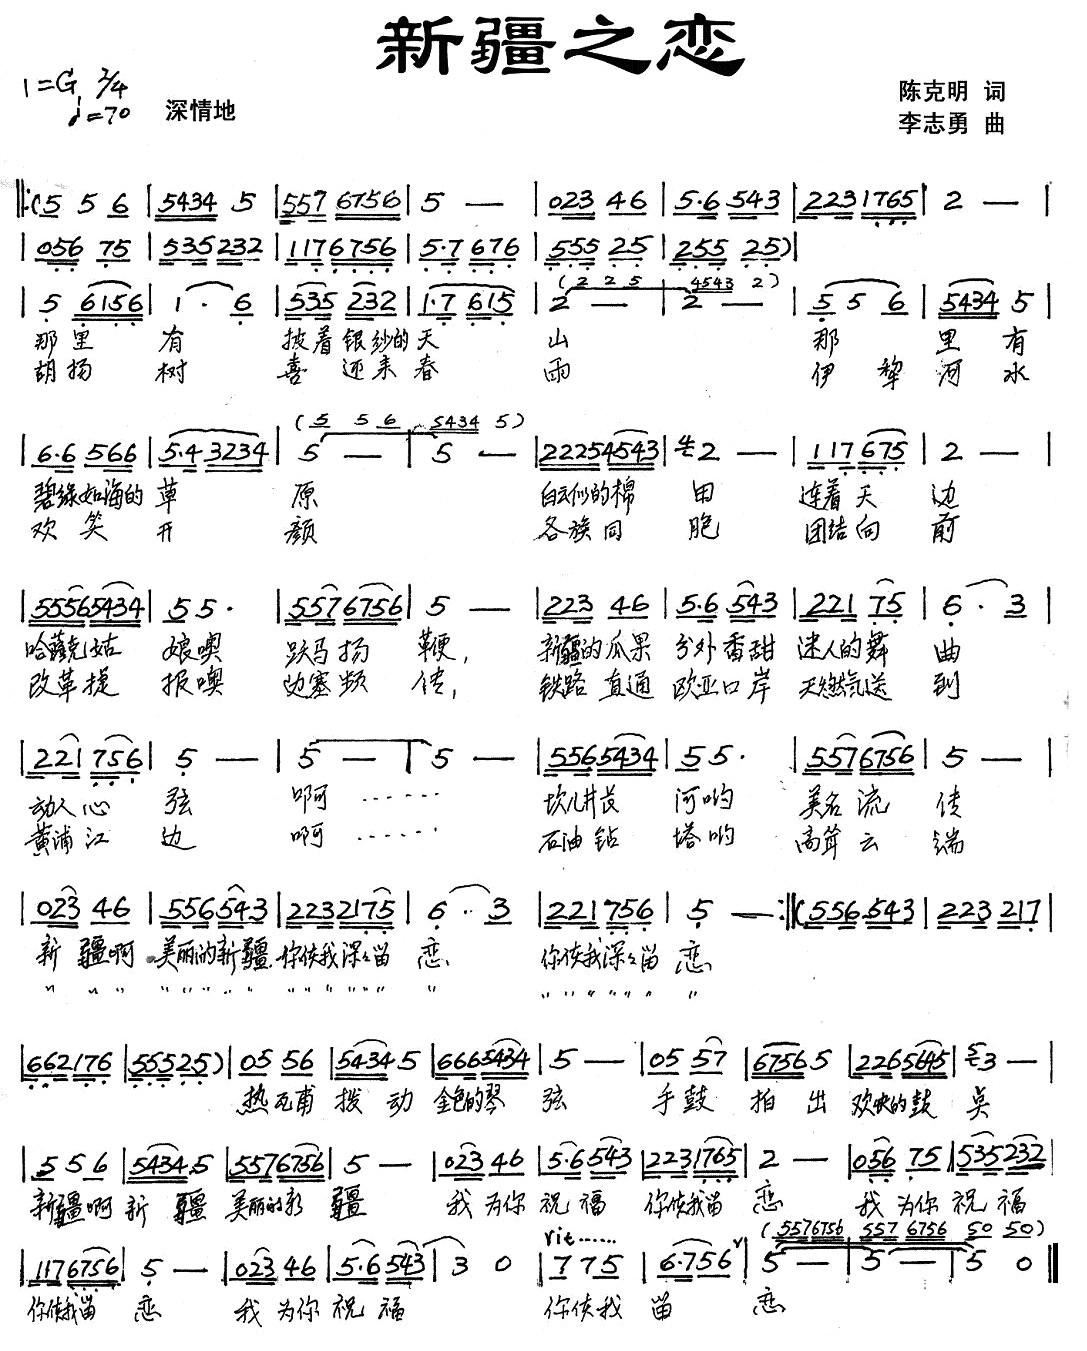 新疆之恋
1=G 2/4
♩=70 深情地
陈克明 词
李志勇 曲
‖:(5 5 6 | 5434 5 | 557 6756 | 5 — | 023 46 | 5·6 543 | 223 1765 | 2 — |
| 056 75 | 535 232 | 117 6756 | 5·7 676 | 555 25 | 255 25) |
(2 2 5 4543 2)
| 5 6156 | 1· 6 | 535 232 | 1·7 615 | 2 — | 2 — | 5 5 6 | 5434 5 |
那里 有 披着银纱的天 山 那 里有
胡扬 树 喜迎来春 雨 伊犁河水
(5 5 6 5434 5)
| 6·6 566 | 5·4 3234 | 5 — | 5 — | 22254543 | 2 — | 117 675 | 2 — |
碧绿如海的草 原 白云似的棉 田 连着天 边
欢笑开 颜 各族同 胞 团结向 前
| 5556 5434 | 5 5· | 557 6756 | 5 — | 223 46 | 5·6 543 | 221 75 | 6· 3 |
哈萨克姑 娘噢 跃马扬 鞭, 新疆的瓜果 分外香甜 迷人的舞 曲
改革捷 报噢 边塞频 传, 铁路直通 欧亚口岸 天燃气送 到
| 221 756 | 5 — | 5 — | 5 — | 556 5434 | 5 5· | 557 6756 | 5 — |
动人心 弦 啊…… 坎儿井长 河哟 美名流 传
黄浦江 边 啊…… 石油钻 塔哟 高耸云 端
| 023 46 | 556 543 | 223 2175 | 6· 3 | 221 756 | 5 — :‖( 556 543 | 223 217 |
新疆啊 美丽的新疆 你使我深深留 恋 你使我深深留 恋
〃 〃 〃 〃〃〃〃〃 〃〃〃〃〃 〃 〃〃〃〃〃〃 〃
| 662 176 | 555 25) | 05 56 | 5434 5 | 666 5434 | 5 — | 05 57 | 6756 5 | 226 5645 | 3 — |
热瓦甫 拨动 金色的琴 弦 手鼓 拍出 欢快的鼓 点
| 5 5 6 | 5434 5 | 557 6756 | 5 — | 023 46 | 5·6 543 | 223 1765 | 2 — | 056 75 | 535 232 |
新疆啊 新疆 美丽的新 疆 我为你 祝福 你使我留 恋 我为你 祝福
rit…… (557 6756 557 6756 50 50)
| 117 6756 | 5 — | 023 46 | 5·6 543 | 3 0 | 7 75 | 6·756 | 5 — | 5 — | 5 0 ‖
你使我留 恋 我为你 祝福 你使我 留 恋